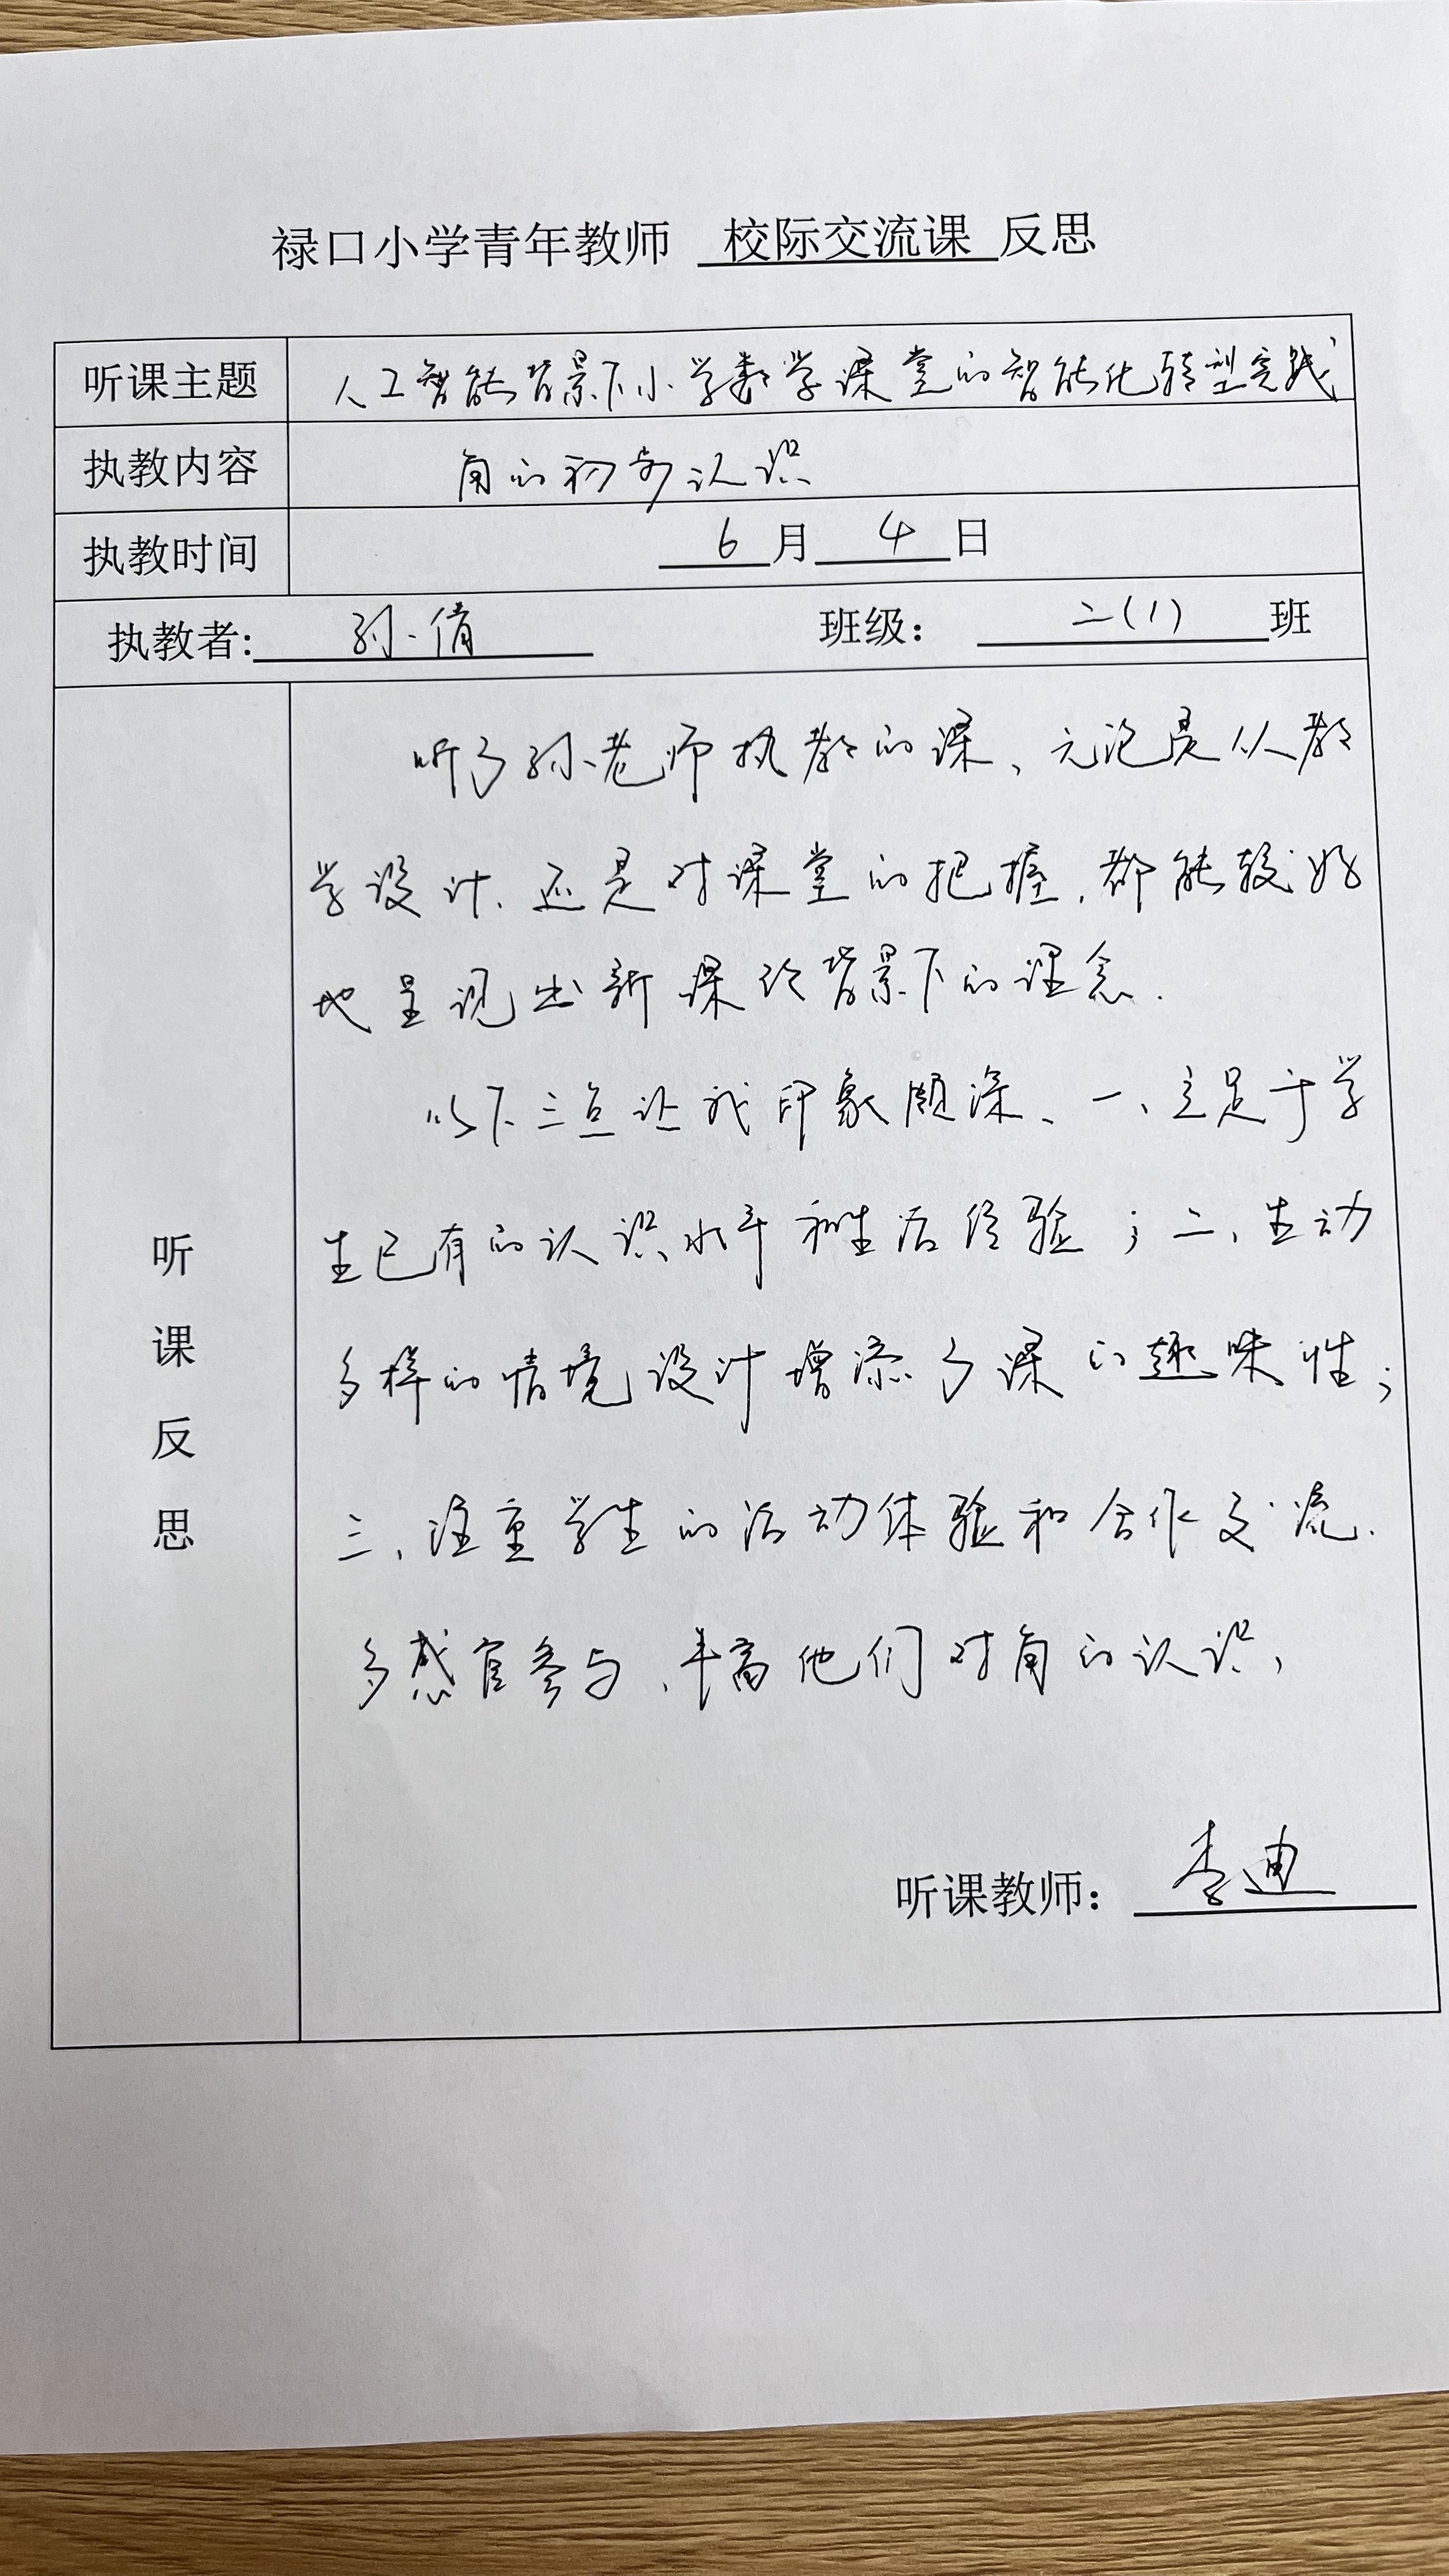 禄口小学青年教师 校际交流课 反思
听课主题 人工智能背景下小学数学课堂的智能化转型实践
执教内容 角的初步认识
执教时间 6月4日
执教者: 孙倩 班级: 二(1)班
听课反思
听了孙老师执教的课、无论是从教
学设计、还是对课堂的把握、都能较好
地呈现出新课改背景下的理念.
以下三点让我印象颇深、一、立足于学
生已有的认识水平和生活经验；二、生动
多样的情境设计增添了课的趣味性；
三、注重学生的活动体验和合作交流.
多感官参与、丰富他们对角的认识、
听课教师: 李迪